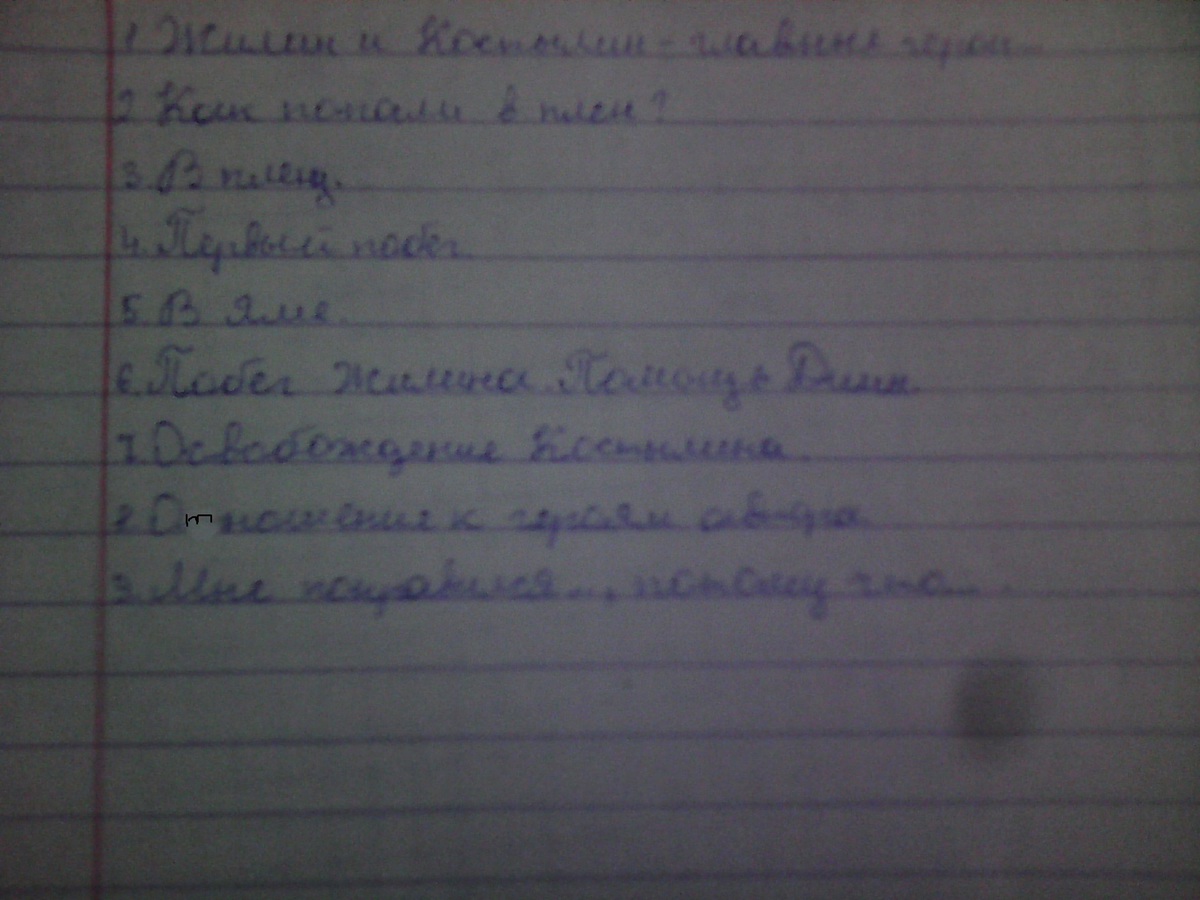 1 Жилин и Костылин - главные герои...
2 Как попали в плен?
3. В плену.
4. Первый побег.
5. В яме.
6. Побег Жилина. Помощь Дины.
7. Освобождение Костылина.
8. Отношение к героям автора.
9. Мне понравился..., потому что...